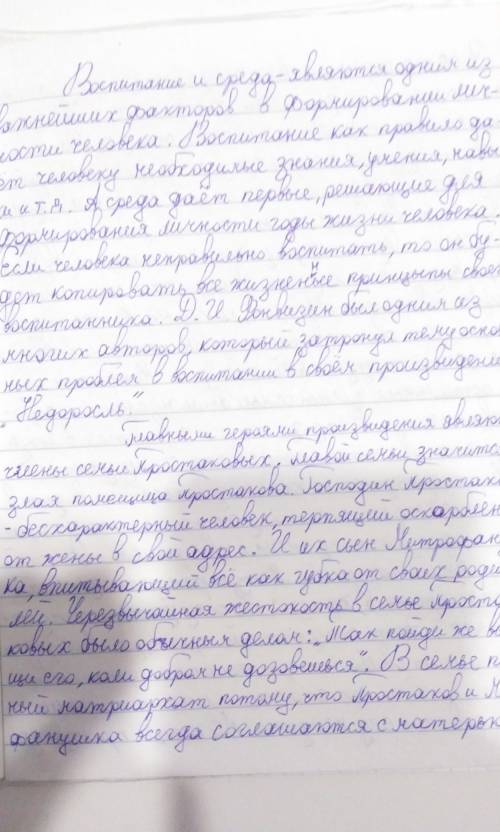 Воспитание и среда-являются одним из
важнейших факторов в формировании лич-
ности человека. Воспитание как правило да-
ёт человеку необходимые знания, умения, навы
ки и т.д. А среда даёт первые, решающие для
формирования личности годы жизни человека.
Если человека неправильно воспитать, то он бу-
дет копировать все жизненные принцыпы своего
воспитанника. Д. И. Фонвизин был одним из
многих авторов, который затронул тему основ
ных проблем в воспитании в своём произвидение
„Недоросль."
Главными героями произвидения являют
члены семьи Простаковых. Главой семьи значится
злая помещица Простакова. Господин Простаков
-бесхарактерный человек, терпящий оскорблен
от жены в свой адрес. И их сын Митрофан
ка, впитывающий всё как губка от своих роди
лей. Черезвычайная жестокость в семье Проста
ковых было обычным делом: „Так пойди же в
щи его, коли добром не дозовешься". В семье п
ный матриархат потому, что Простаков и М
фанушка всегда соглашаются с матерью